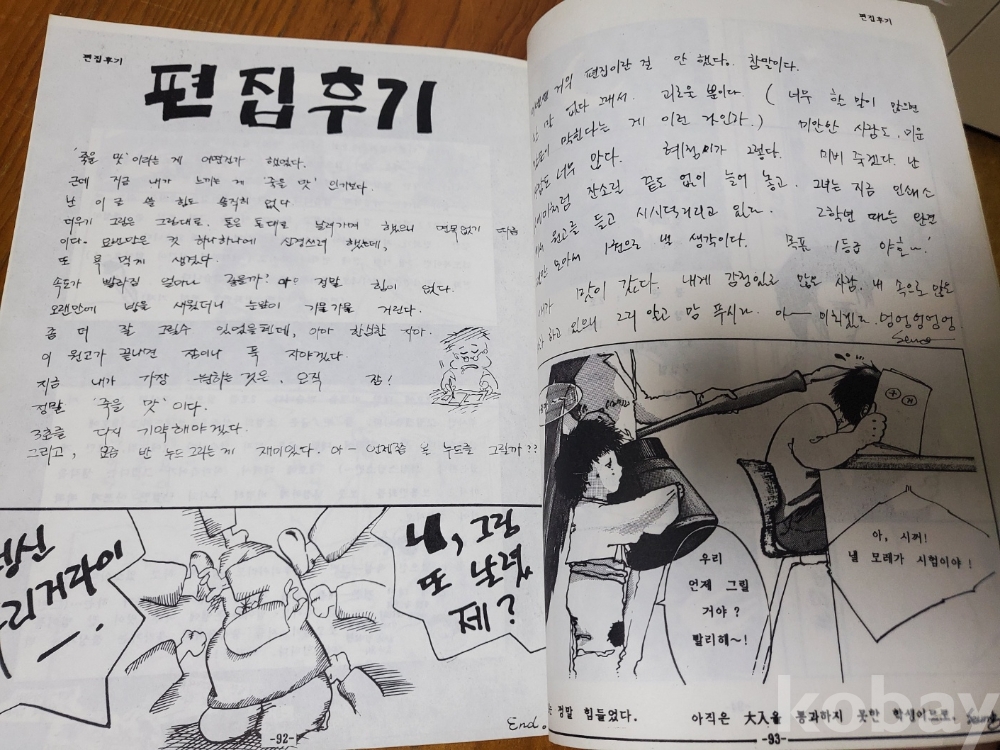 편집후기
편집후기
'죽을 맛'이라는 게 어떤건가 했었다.
근데 지금 내가 느끼는 게 '죽을 맛' 인가보다.
난 이런 쓸 힘도 솔직히 없다
더우기 그림은 그림대로, 톤은 톤대로 날려가며 했으니 면목없기
이다. 요번만은 컷 하나하나에 신경쓰려 했는데,
또 욕 먹게 생겼다.
속도가 빨라질 얼마나 좋을까? 아 정말 힘이 없다.
오랜만에 밤을 새웠더니 눈앞이 가물가물 거린다.
좀 더 잘 그릴수 있었을텐데, 아마 한심한
이 원고가 끝나면 잠이나 푹 자야겠다.
지금 내가 가장 원하는 것은, 오직 잠!
정말 '죽을 맛'이다.
3호를 다시 기약해야겠다.
그리고, 요즘 반 누드 그리는 게 재미있다. 아— 언제쯤 누드를 그릴까??
정신
리거라이
내, 그림
또 날렸
제?
End.
-92-
편집후기
거의 편집이란 걸 안 했다. 참말이다.
없다 그래서. 괴로울 뿐이다 ( 너무 한 일이 없으면
막힌다는 게 이런 것인가.) 미안한 사람도, 미운
너무 많다. 혜정이가 그렇다. 미비 죽겠다. 난
잔소릴 끝도 없이 늘어 놓고, 그녀는 지금 인쇄소
원고를 들고 시시덕거리고 있다. 2학년 때는 완전
모아서 1권으로 낼 생각이다. 목표 1등급 야호~!
맛이 갔다. 내게 감정있는 많은 사람, 내 속으로 많은
하고 있으니 그리 알고 맘 푸시라. 아— 미치겠다. 엉엉엉엉엉
우리
언제 그릴
거야?
빨리해~!
아, 시꺼!
낼 모레가 시험이야!
정말 힘들었다. 아직은 大入을 통과하지 못한 학생이므로,
-93-
kobay